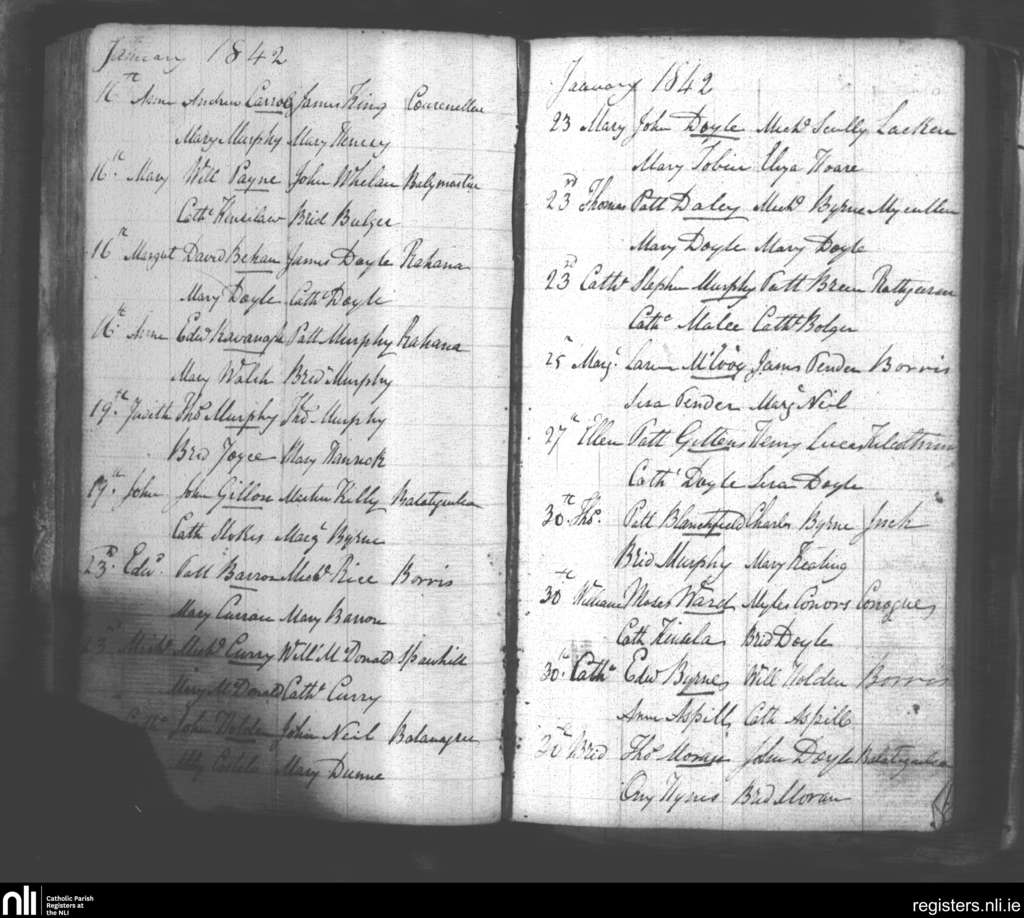 January 1842
16th Anne Andrew Carroll James King
Mary Murphy Mary
16th Mary Will Payne John Whelan Balymartin
Cathe Kinsilaw Brid Bulger
16th Margat David Behan James Doyle Rahana
Mary Doyle Cathe Doyle
16th Anne Edwd Kavanagh Patt Murphy Rahana
Mary Walsh Brid Murphy
19th Judith Thos Murphy Thos Murphy
Brid Joyce Mary
19th John John Gillon Martin Killy
Cath Stokes Marg Byrne
23rd Edwd Patt Barron Michl Rice Borris
Mary Curran Mary Barron
23 Michl Michl Curry Will McDonald Spawhill
Mary McDonald Cathe Curry
John Holden John Neil
Mary Dunne
January 1842
23 Mary John Doyle Michl Scully Lacken
Mary Tobin Eliza Hoare
23rd Thomas Patt Daley Michl Byrne
Mary Doyle Mary Doyle
23rd Cathe Stephen Murphy Patt Breen
Cathe Malee Cathe Bolger
25 Marg James Pender Borris
Pender Marg Neil
27th Ellen Patt Gittens Henry
Cathe Doyle Doyle
30th Thos Patt Blanchfield Charles Byrne Inch
Brid Murphy Mary Keating
30th William Moses Ward Myles Conors
Cath Kinsela Brid Doyle
30th Cathe Edwd Byrnes Will Holden Borris
Anne Aspill Cath Aspill
30th Brid Thos Moran John Doyle
Brid Moran
nli
Catholic Parish
Registers at
the NLI
registers.nli.ie